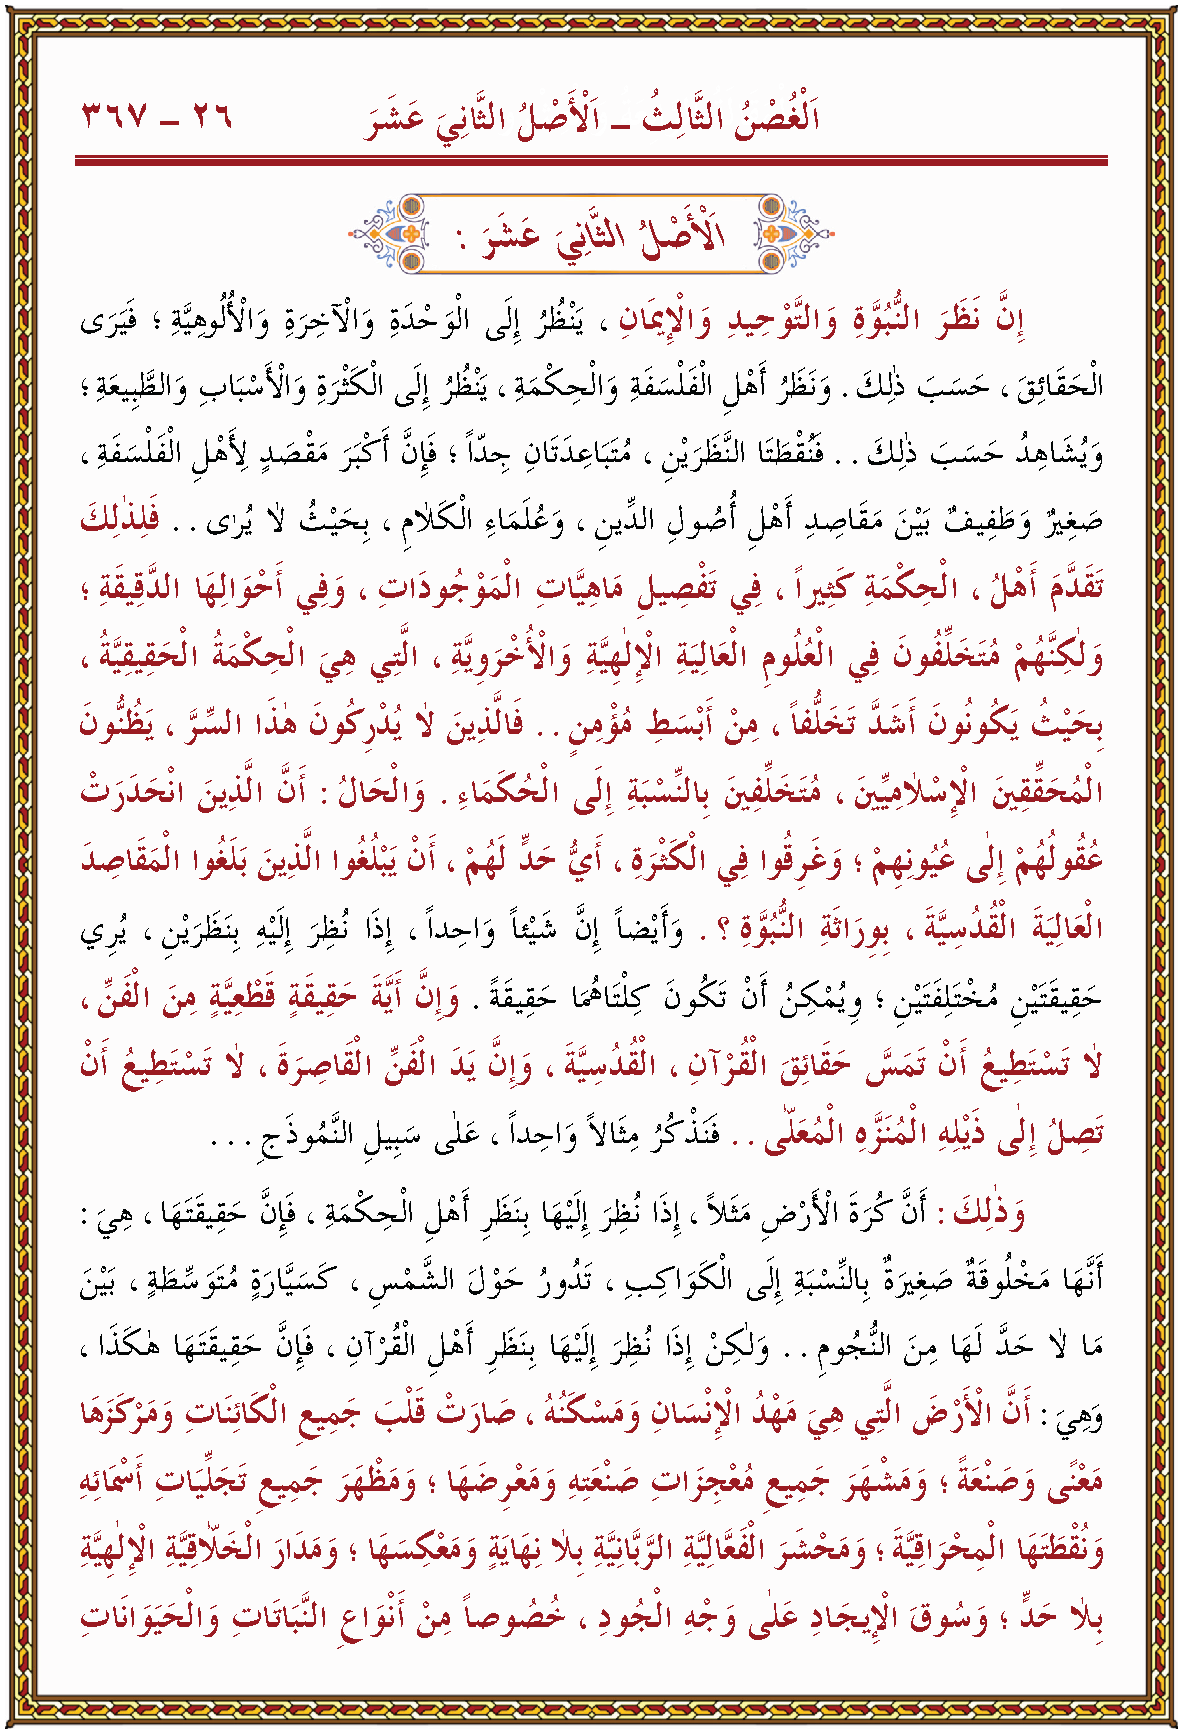 اَلْغُصْنُ الثَّالِثُ ـ اَلْأَصْلُ الثَّانِيَ عَشَرَ ٢٦ ـ ٣٦٧
اَلْأَصْلُ الثَّانِيَ عَشَرَ :
إِنَّ نَظَرَ النُّبُوَّةِ وَالتَّوْحِيدِ وَالْإِيمَانِ ، يَنْظُرُ إِلَى الْوَحْدَةِ وَالْآخِرَةِ وَالْأُلُوهِيَّةِ ؛ فَيَرَى
الْحَقَائِقَ ، حَسَبَ ذٰلِكَ . وَنَظَرُ أَهْلِ الْفَلْسَفَةِ وَالْحِكْمَةِ ، يَنْظُرُ إِلَى الْكَثْرَةِ وَالْأَسْبَابِ وَالطَّبِيعَةِ ؛
وَيُشَاهِدُ حَسَبَ ذٰلِكَ . . فَنُقْطَتَا النَّظَرَيْنِ ، مُتَبَاعِدَتَانِ جِدّاً ؛ فَإِنَّ أَكْبَرَ مَقْصَدٍ لِأَهْلِ الْفَلْسَفَةِ ،
صَغِيرٌ وَطَفِيفٌ بَيْنَ مَقَاصِدِ أَهْلِ أُصُولِ الدِّينِ ، وَعُلَمَاءِ الْكَلَامِ ، بِحَيْثُ لَا يُرٰى . . فَلِذٰلِكَ
تَقَدَّمَ أَهْلُ ، الْحِكْمَةِ كَثِيراً ، فِي تَفْصِيلِ مَاهِيَّاتِ الْمَوْجُودَاتِ ، وَفِي أَحْوَالِهَا الدَّقِيقَةِ ؛
وَلٰكِنَّهُمْ مُتَخَلِّفُونَ فِي الْعُلُومِ الْعَالِيَةِ الْإِلٰهِيَّةِ وَالْأُخْرَوِيَّةِ ، الَّتِي هِيَ الْحِكْمَةُ الْحَقِيقِيَّةُ ،
بِحَيْثُ يَكُونُونَ أَشَدَّ تَخَلُّفاً ، مِنْ أَبْسَطِ مُؤْمِنٍ . . فَالَّذِينَ لَا يُدْرِكُونَ هٰذَا السِّرَّ ، يَظُنُّونَ
الْمُحَقِّقِينَ الْإِسْلَامِيِّينَ ، مُتَخَلِّفِينَ بِالنِّسْبَةِ إِلَى الْحُكَمَاءِ . وَالْحَالُ : أَنَّ الَّذِينَ انْحَدَرَتْ
عُقُولُهُمْ إِلٰى عُيُونِهِمْ ؛ وَغَرِقُوا فِي الْكَثْرَةِ ، أَيُّ حَدٍّ لَهُمْ ، أَنْ يَبْلُغُوا الَّذِينَ بَلَغُوا الْمَقَاصِدَ
الْعَالِيَةَ الْقُدُسِيَّةَ ، بِوِرَاثَةِ النُّبُوَّةِ ؟ . وَأَيْضاً إِنَّ شَيْئاً وَاحِداً ، إِذَا نُظِرَ إِلَيْهِ بِنَظَرَيْنِ ، يُرِي
حَقِيقَتَيْنِ مُخْتَلِفَتَيْنِ ؛ وِيُمْكِنُ أَنْ تَكُونَ كِلْتَاهُمَا حَقِيقَةً . وَإِنَّ أَيَّةَ حَقِيقَةٍ قَطْعِيَّةٍ مِنَ الْفَنِّ ،
لَا تَسْتَطِيعُ أَنْ تَمَسَّ حَقَائِقَ الْقُرْآنِ ، الْقُدُسِيَّةَ ، وَإِنَّ يَدَ الْفَنِّ الْقَاصِرَةَ ، لَا تَسْتَطِيعُ أَنْ
تَصِلُ إِلٰى ذَيْلِهِ الْمُنَزَّهِ الْمُعَلّٰى . . فَنَذْكُرُ مِثَالاً وَاحِداً ، عَلٰى سَبِيلِ النَّمُوذَجِ . . .
وَذٰلِكَ : أَنَّ كُرَةَ الْأَرْضِ مَثَلاً ، إِذَا نُظِرَ إِلَيْهَا بِنَظَرِ أَهْلِ الْحِكْمَةِ ، فَإِنَّ حَقِيقَتَهَا ، هِيَ :
أَنَّهَا مَخْلُوقَةٌ صَغِيرَةٌ بِالنِّسْبَةِ إِلَى الْكَوَاكِبِ ، تَدُورُ حَوْلَ الشَّمْسِ ، كَسَيَّارَةٍ مُتَوَسِّطَةٍ ، بَيْنَ
مَا لَا حَدَّ لَهَا مِنَ النُّجُومِ . . وَلٰكِنْ إِذَا نُظِرَ إِلَيْهَا بِنَظَرِ أَهْلِ الْقُرْآنِ ، فَإِنَّ حَقِيقَتَهَا هٰكَذَا ،
وَهِيَ : أَنَّ الْأَرْضَ الَّتِي هِيَ مَهْدُ الْإِنْسَانِ وَمَسْكَنُهُ ، صَارَتْ قَلْبَ جَمِيعِ الْكَائِنَاتِ وَمَرْكَزَهَا
مَعْنًى وَصَنْعَةً ؛ وَمَشْهَرَ جَمِيعِ مُعْجِزَاتِ صَنْعَتِهِ وَمَعْرِضَهَا ؛ وَمَظْهَرَ جَمِيعِ تَجَلِّيَاتِ أَسْمَائِهِ
وَنُقْطَتَهَا الْمِحْرَاقِيَّةَ ؛ وَمَحْشَرَ الْفَعَّالِيَّةِ الرَّبَّانِيَّةِ بِلَا نِهَايَةٍ وَمَعْكِسَهَا ؛ وَمَدَارَ الْخَلَّاقِيَّةِ الْإِلٰهِيَّةِ
بِلَا حَدٍّ ؛ وَسُوقَ الْإِيجَادِ عَلٰى وَجْهِ الْجُودِ ، خُصُوصاً مِنْ أَنْوَاعِ النَّبَاتَاتِ وَالْحَيَوَانَاتِ